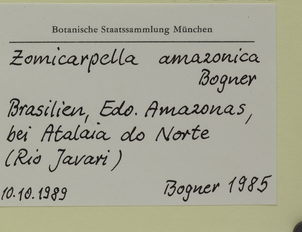 Botanische Staatssammlung München
Zomicarpella amazonica
Bogner
Brasilien, Edo. Amazonas,
bei Atalaia do Norte
(Rio Javari)
10.10.1989 Bogner 1985